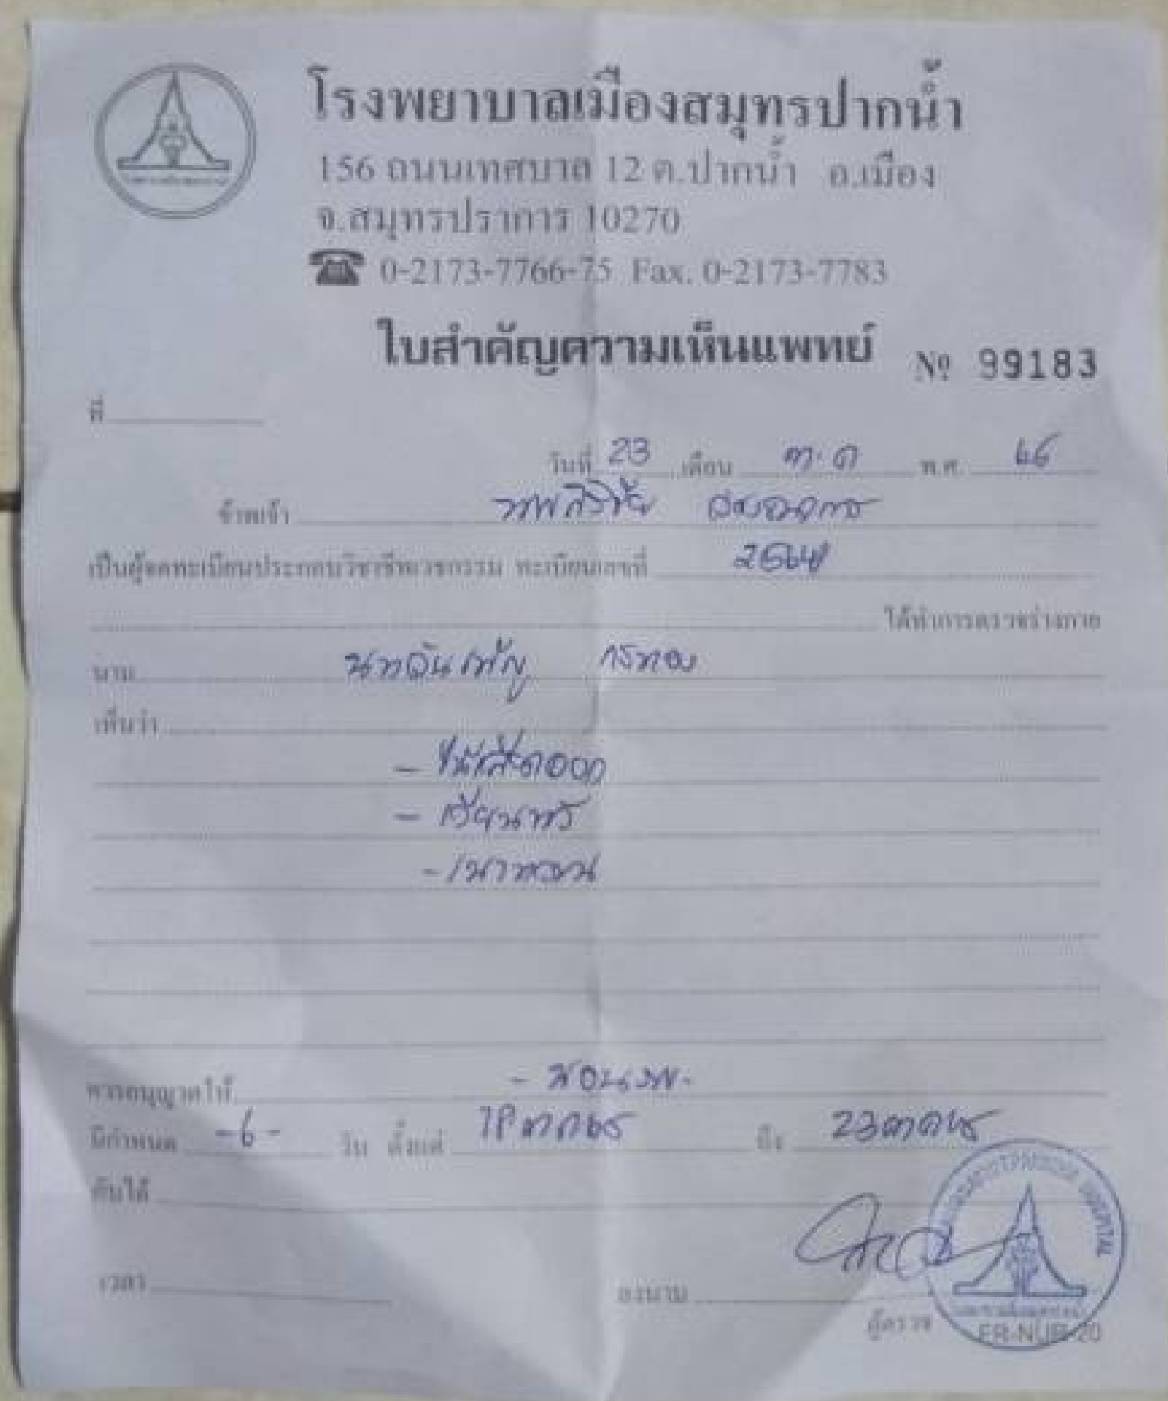 โรงพยาบาลเมืองสมุทรปากน้ำ
156 ถนนเทศบาล 12 ต.ปากน้ำ อ.เมือง
จ.สมุทรปราการ 10270
☎ 0-2173-7766-75 Fax. 0-2173-7783
ใบสำคัญความเห็นแพทย์ № 99183
ที่
วันที่ 23 เดือน ต.ค พ.ศ. 66
ข้าพเจ้า
เป็นผู้จดทะเบียนประกอบวิชาชีพเวชกรรม ทะเบียนเลขที่
ได้ทำการตรวจร่างกาย
นาม
เห็นว่า
- ไข้เลือดออก
- เวียนหัว
- เบาหวาน
ควรอนุญาตให้ - นอนรพ.
มีกำหนด -6- วัน ตั้งแต่ ถึง 23
ดังได้
เวลา ลงนาม
ผู้ตรวจ
ER-NUR-20